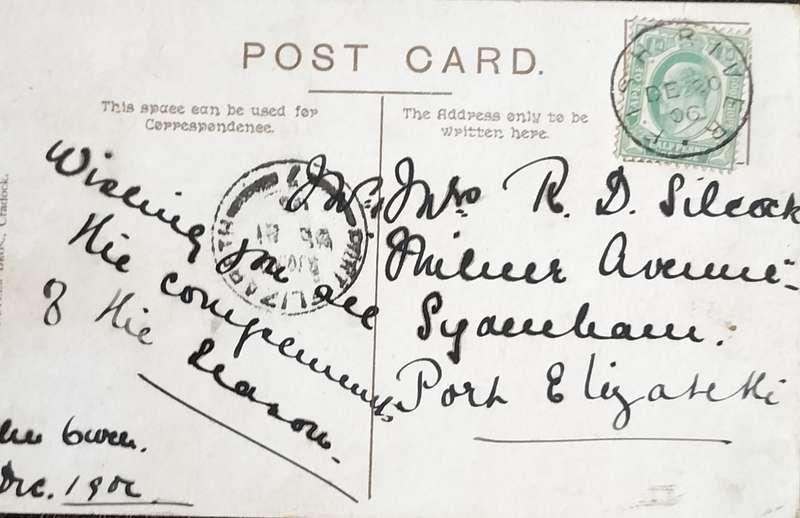 POST CARD.
This space can be used for
Correspondence.
The Address only to be
Written here.
FISH RIVER
DE 20
06
PORT ELIZABETH
Wishing you all
the compliments
of the Season.
Dec. 190
Mr & Mrs R. D. Silcock
Milner Avenue
Sydenham.
Port Elizabeth
Cradock.